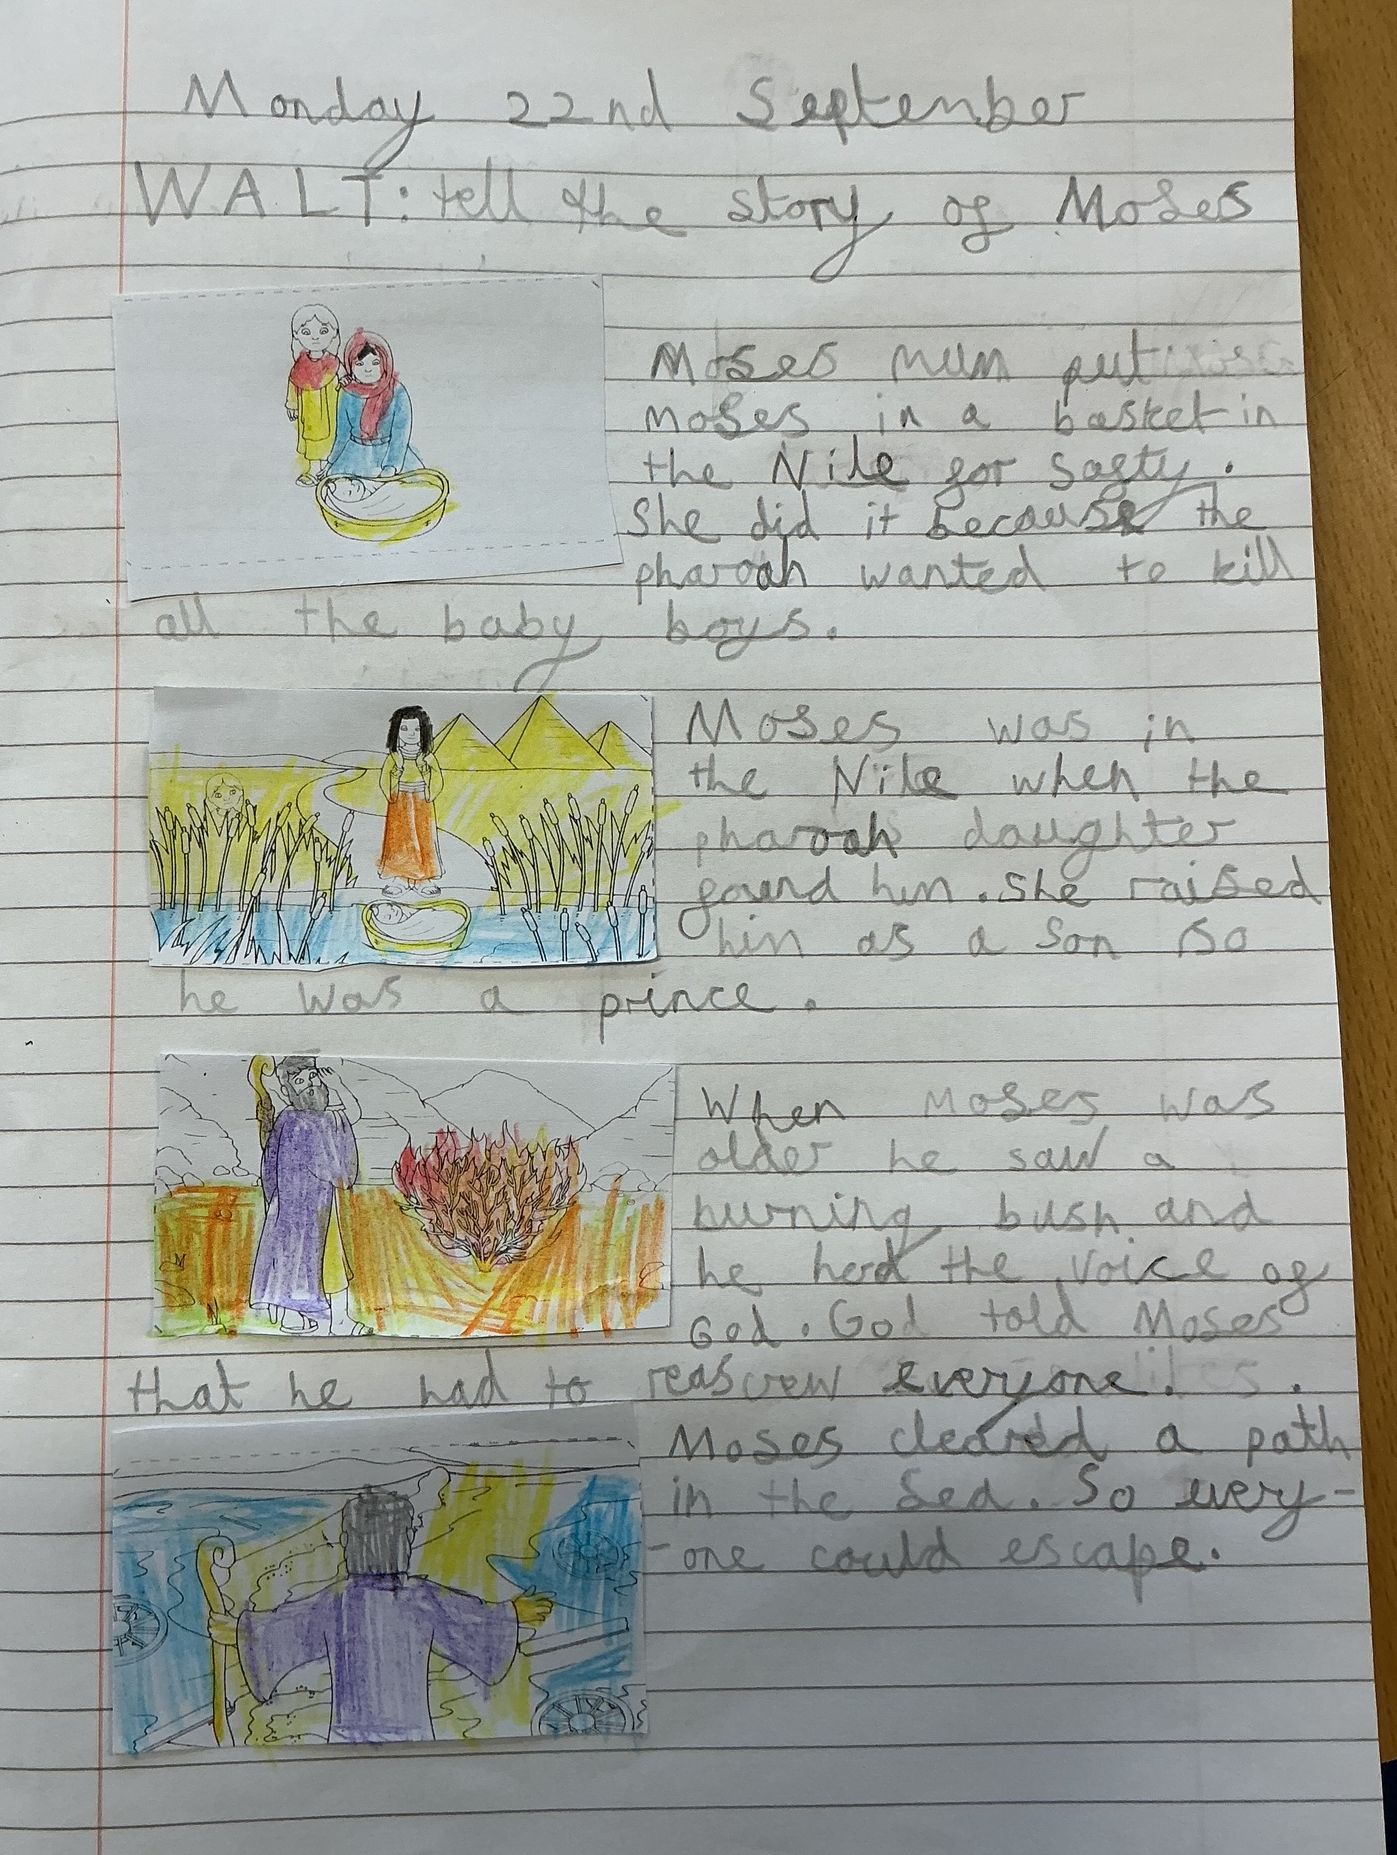 Monday 22nd September
WALT: tell the story of Moses
Moses mum put
moses in a basket in
the Nile for safty.
She did it because the
pharoah wanted to kill
all the baby boys.
Moses was in
the Nile when the
pharoah daughter
found him. She raised
him as a son so
he was a prince.
When Moses was
older he saw a
burning bush and
he herd the voice of
God. God told Moses
that he had to everyone.
Moses cleared a path
in the Sea. So every-
-one could escape.